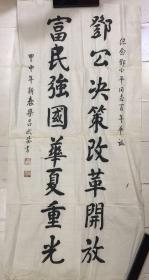 纪念邓小平同志百年华诞
鄧公决策改革開放
富民強國華夏重光
甲申年新春